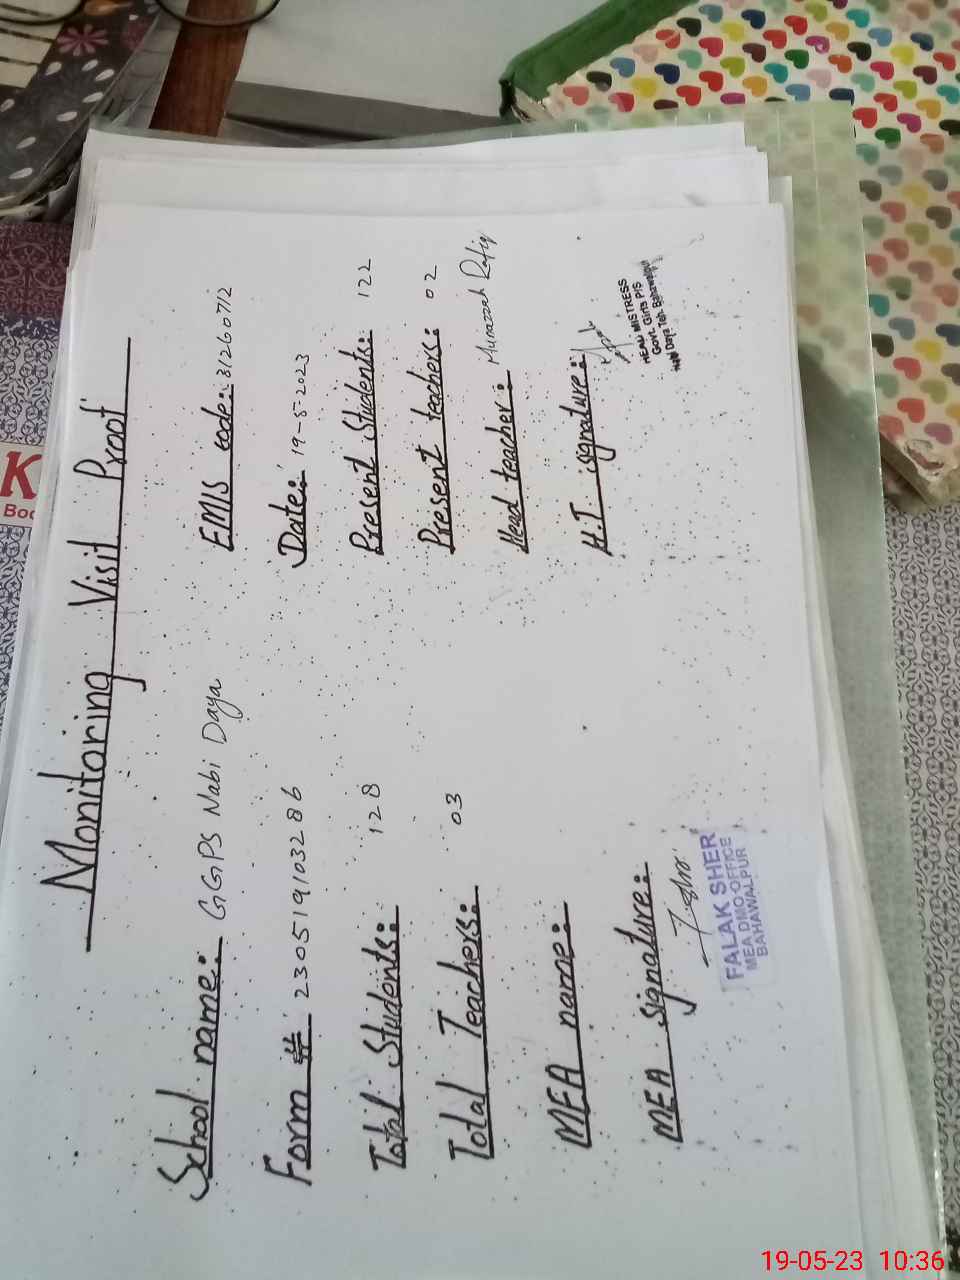 Monitoring Visit Proof
School name: GGPS Nabi Daya
EMIS code: 31260712
Form # 230519103286
Date: 19-5-2023
Total Students: 128
Present Students: 122
Total Teachers: 03
Present teachers: 02
MEA name:
Head teacher: Munazzah Rafiq
MEA signature:
H.T signature:
FALAK SHER
MEA DMO OFFICE
BAHAWALPUR
HEAD MISTRESS
Govt. Girls P/S
Nabi Daya Teh. Bahawalpur
K
19-05-23 10:36